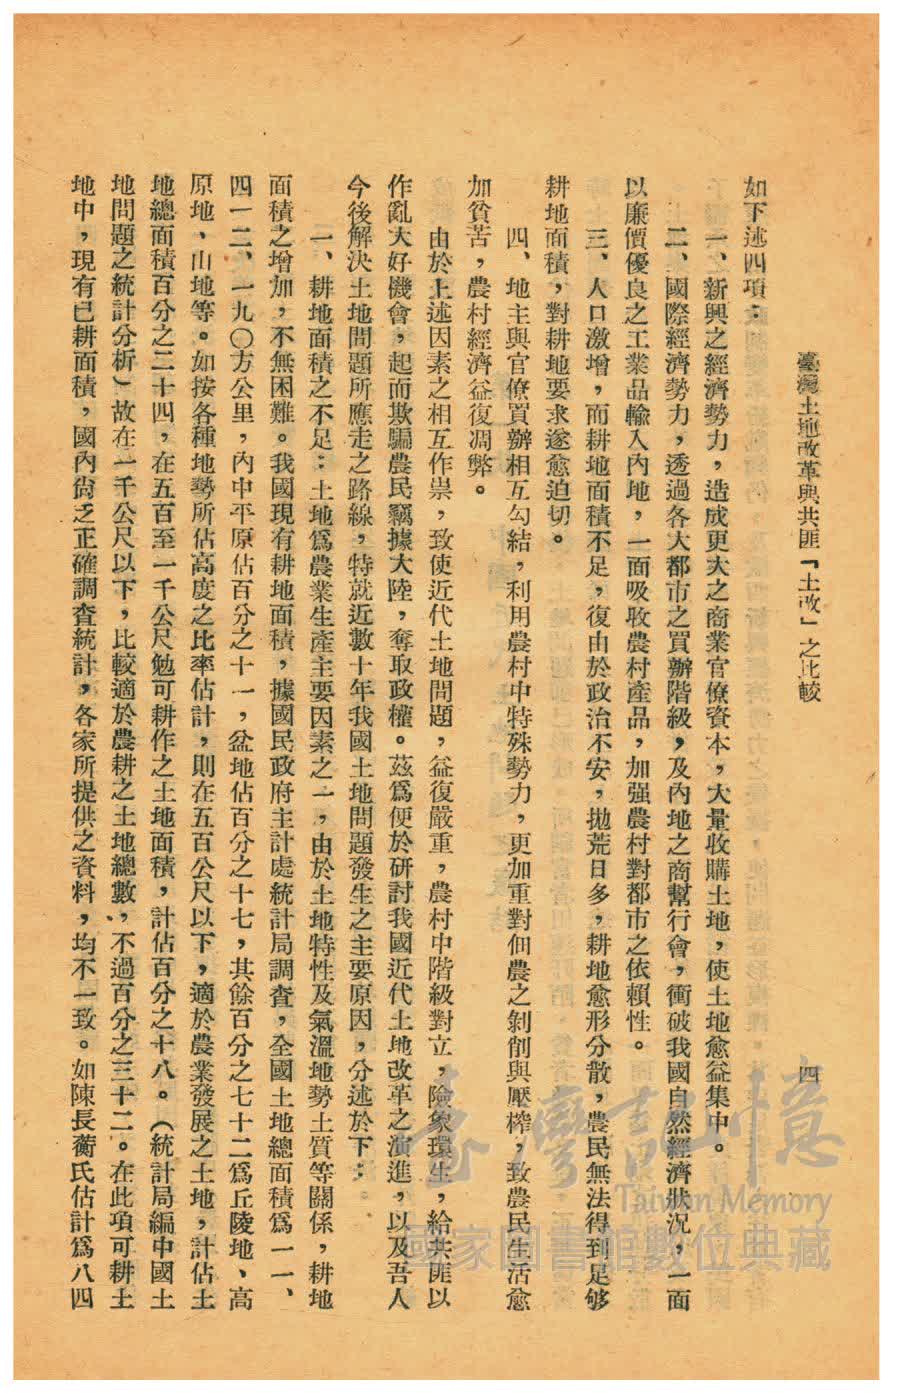 臺灣土地改革與共匪「土改」之比較
四
如下述四項：
一、新興之經濟勢力，造成更大之商業官僚資本，大量收購土地，使土地愈益集中。
二、國際經濟勢力，透過各大都市之買辦階級，及內地之商幫行會，衝破我國自然經濟狀況，一面
以廉價優良之工業品輸入內地，一面吸收農村產品，加强農村對都市之依賴性。
三、人口激增，而耕地面積不足，復由於政治不安，拋荒日多，耕地愈形分散，農民無法得到足够
耕地面積，對耕地要求遂愈迫切。
四、地主與官僚買辦相互勾結，利用農村中特殊勢力，更加重對佃農之剝削與壓榨，致農民生活愈
加貧苦，農村經濟益復凋弊。
由於上述因素之相互作祟，致使近代土地問題，益復嚴重，農村中階級對立，險象環生，給共匪以
作亂大好機會，起而欺騙農民竊據大陸，奪取政權。茲爲便於研討我國近代土地改革之演進，以及吾人
今後解決土地問題所應走之路線，特就近數十年我國土地問題發生之主要原因，分述於下：
一、耕地面積之不足：土地爲農業生產主要因素之一，由於土地特性及氣溫地勢土質等關係，耕地
面積之增加，不無困難。我國現有耕地面積，據國民政府主計處統計局調查，全國土地總面積爲一一、
四一二、一九〇方公里，內中平原佔百分之十一，盆地佔百分之十七，其餘百分之七十二爲丘陵地、高
原地、山地等。如按各種地勢所佔高度之比率估計，則在五百公尺以下，適於農業發展之土地，計佔土
地總面積百分之二十四，在五百至一千公尺勉可耕作之土地面積，計佔百分之十八。（統計局編中國土
地問題之統計分析）故在一千公尺以下，比較適於農耕之土地總數，不過百分之三十二。在此項可耕土
地中，現有已耕面積，國內尙乏正確調查統計，各家所提供之資料，均不一致。如陳長蘅氏估計爲八四
臺灣記憶
Taiwan Memory
國家圖書館數位典藏